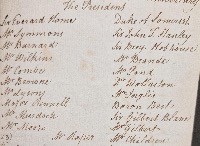 The President
Sir Everard Home Duke of Somerset
Mr Symmons Sir John T. Stanley
Mr Barnard Sir Benj. Hobhouse
Mr Wilkins Mr Brande
Mr Combe Mr Pond
Mr Dr Wollaston
Mr Lysons Mr Inglis
Major Rennell Baron Best
Mr Murdoch Sir Gilbert Blane
Mr Moore Mr Gilbert
Mr Roper Mr Children